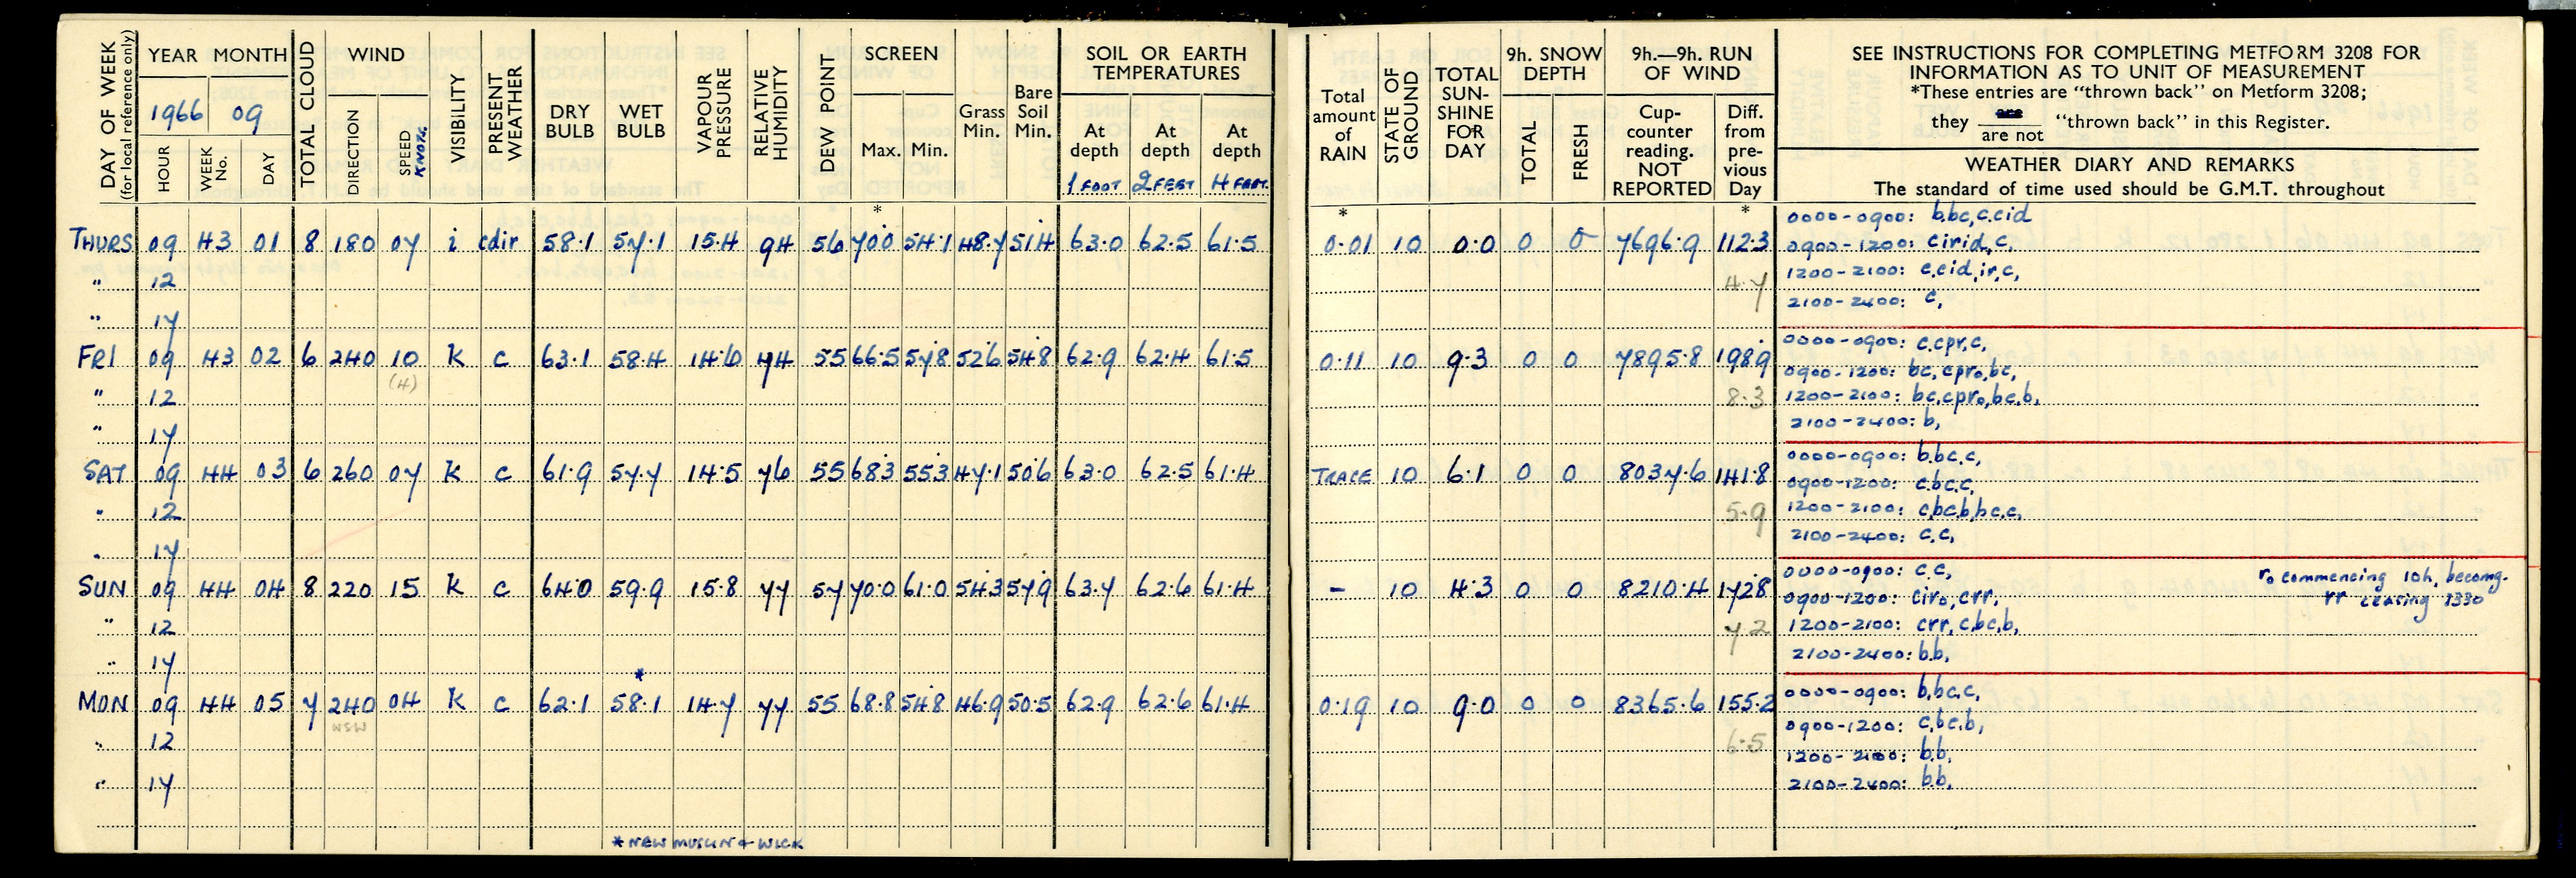 DAY OF WEEK (for local reference only) YEAR MONTH TOTAL CLOUD WIND VISIBILITY PRESENT WEATHER DRY BULB WET BULB VAPOUR PRESSURE RELATIVE HUMIDITY DEW POINT SCREEN Grass Min. Bare Soil Min. SOIL OR EARTH TEMPERATURES
1966 09
HOUR WEEK No. DAY DIRECTION SPEED KNOTS. Max. Min. At depth At depth At depth
1 FOOT 2 FEET 4 FEET
*
THURS 09 43 01 8 180 07 i cdir 58.1 57.1 15.4 94 56 70.0 54.1 48.7 51.4 63.0 62.5 61.5
" 12
" 17
FRI 09 43 02 6 240 10 K c 63.1 58.4 14.6 74 55 66.5 57.8 52.6 54.8 62.9 62.4 61.5
(4)
" 12
" 17
SAT 09 44 03 6 260 07 K c 61.9 57.7 14.5 76 55 68.3 55.3 47.1 50.6 63.0 62.5 61.4
" 12
" 17
SUN 09 44 04 8 220 15 K c 64.0 59.9 15.8 77 57 70.0 61.0 54.3 57.9 63.7 62.6 61.4
" 12
" 17
*
MON 09 44 05 7 240 04 K c 62.1 58.1 14.7 77 55 68.8 54.8 46.9 50.5 62.9 62.6 61.4
WSW
" 12
" 17
* NEW MUSLIN & WICK
Total amount of RAIN STATE OF GROUND TOTAL SUN-SHINE FOR DAY 9h. SNOW DEPTH 9h.—9h. RUN OF WIND
TOTAL FRESH Cup-counter reading. NOT REPORTED Diff. from pre-vious Day
SEE INSTRUCTIONS FOR COMPLETING METFORM 3208 FOR
INFORMATION AS TO UNIT OF MEASUREMENT
*These entries are "thrown back" on Metform 3208;
they are / are not "thrown back" in this Register.
WEATHER DIARY AND REMARKS
The standard of time used should be G.M.T. throughout
* *
0000-0900: b,bc,c,cid
0.01 10 0.0 0 0 7696.9 112.3 0900-1200: cirid,c,
4.7 1200-2100: c,cid,ir,c,
2100-2400: c,
0000-0900: c,cpr,c,
0.11 10 9.3 0 0 7895.8 198.9 0900-1200: bc,cpr₀,bc,
8.3 1200-2100: bc,cpr₀,bc,b,
2100-2400: b,
0000-0900: b,bc,c,
TRACE 10 6.1 0 0 8037.6 141.8 0900-1200: c,bc,c,
5.9 1200-2100: c,bc,b,bc,c,
2100-2400: c,c,
0000-0900: c,c, r₀ commencing 10h, becomg.
- 10 4.3 0 0 8210.4 172.8 0900-1200: cir₀,crr, rr ceasing 1330
7.2 1200-2100: crr,c,bc,b,
2100-2400: b,b,
0000-0900: b,bc,c,
0.19 10 9.0 0 0 8365.6 155.2 0900-1200: c,bc,b,
6.5 1200-2100: b,b,
2100-2400: b,b,